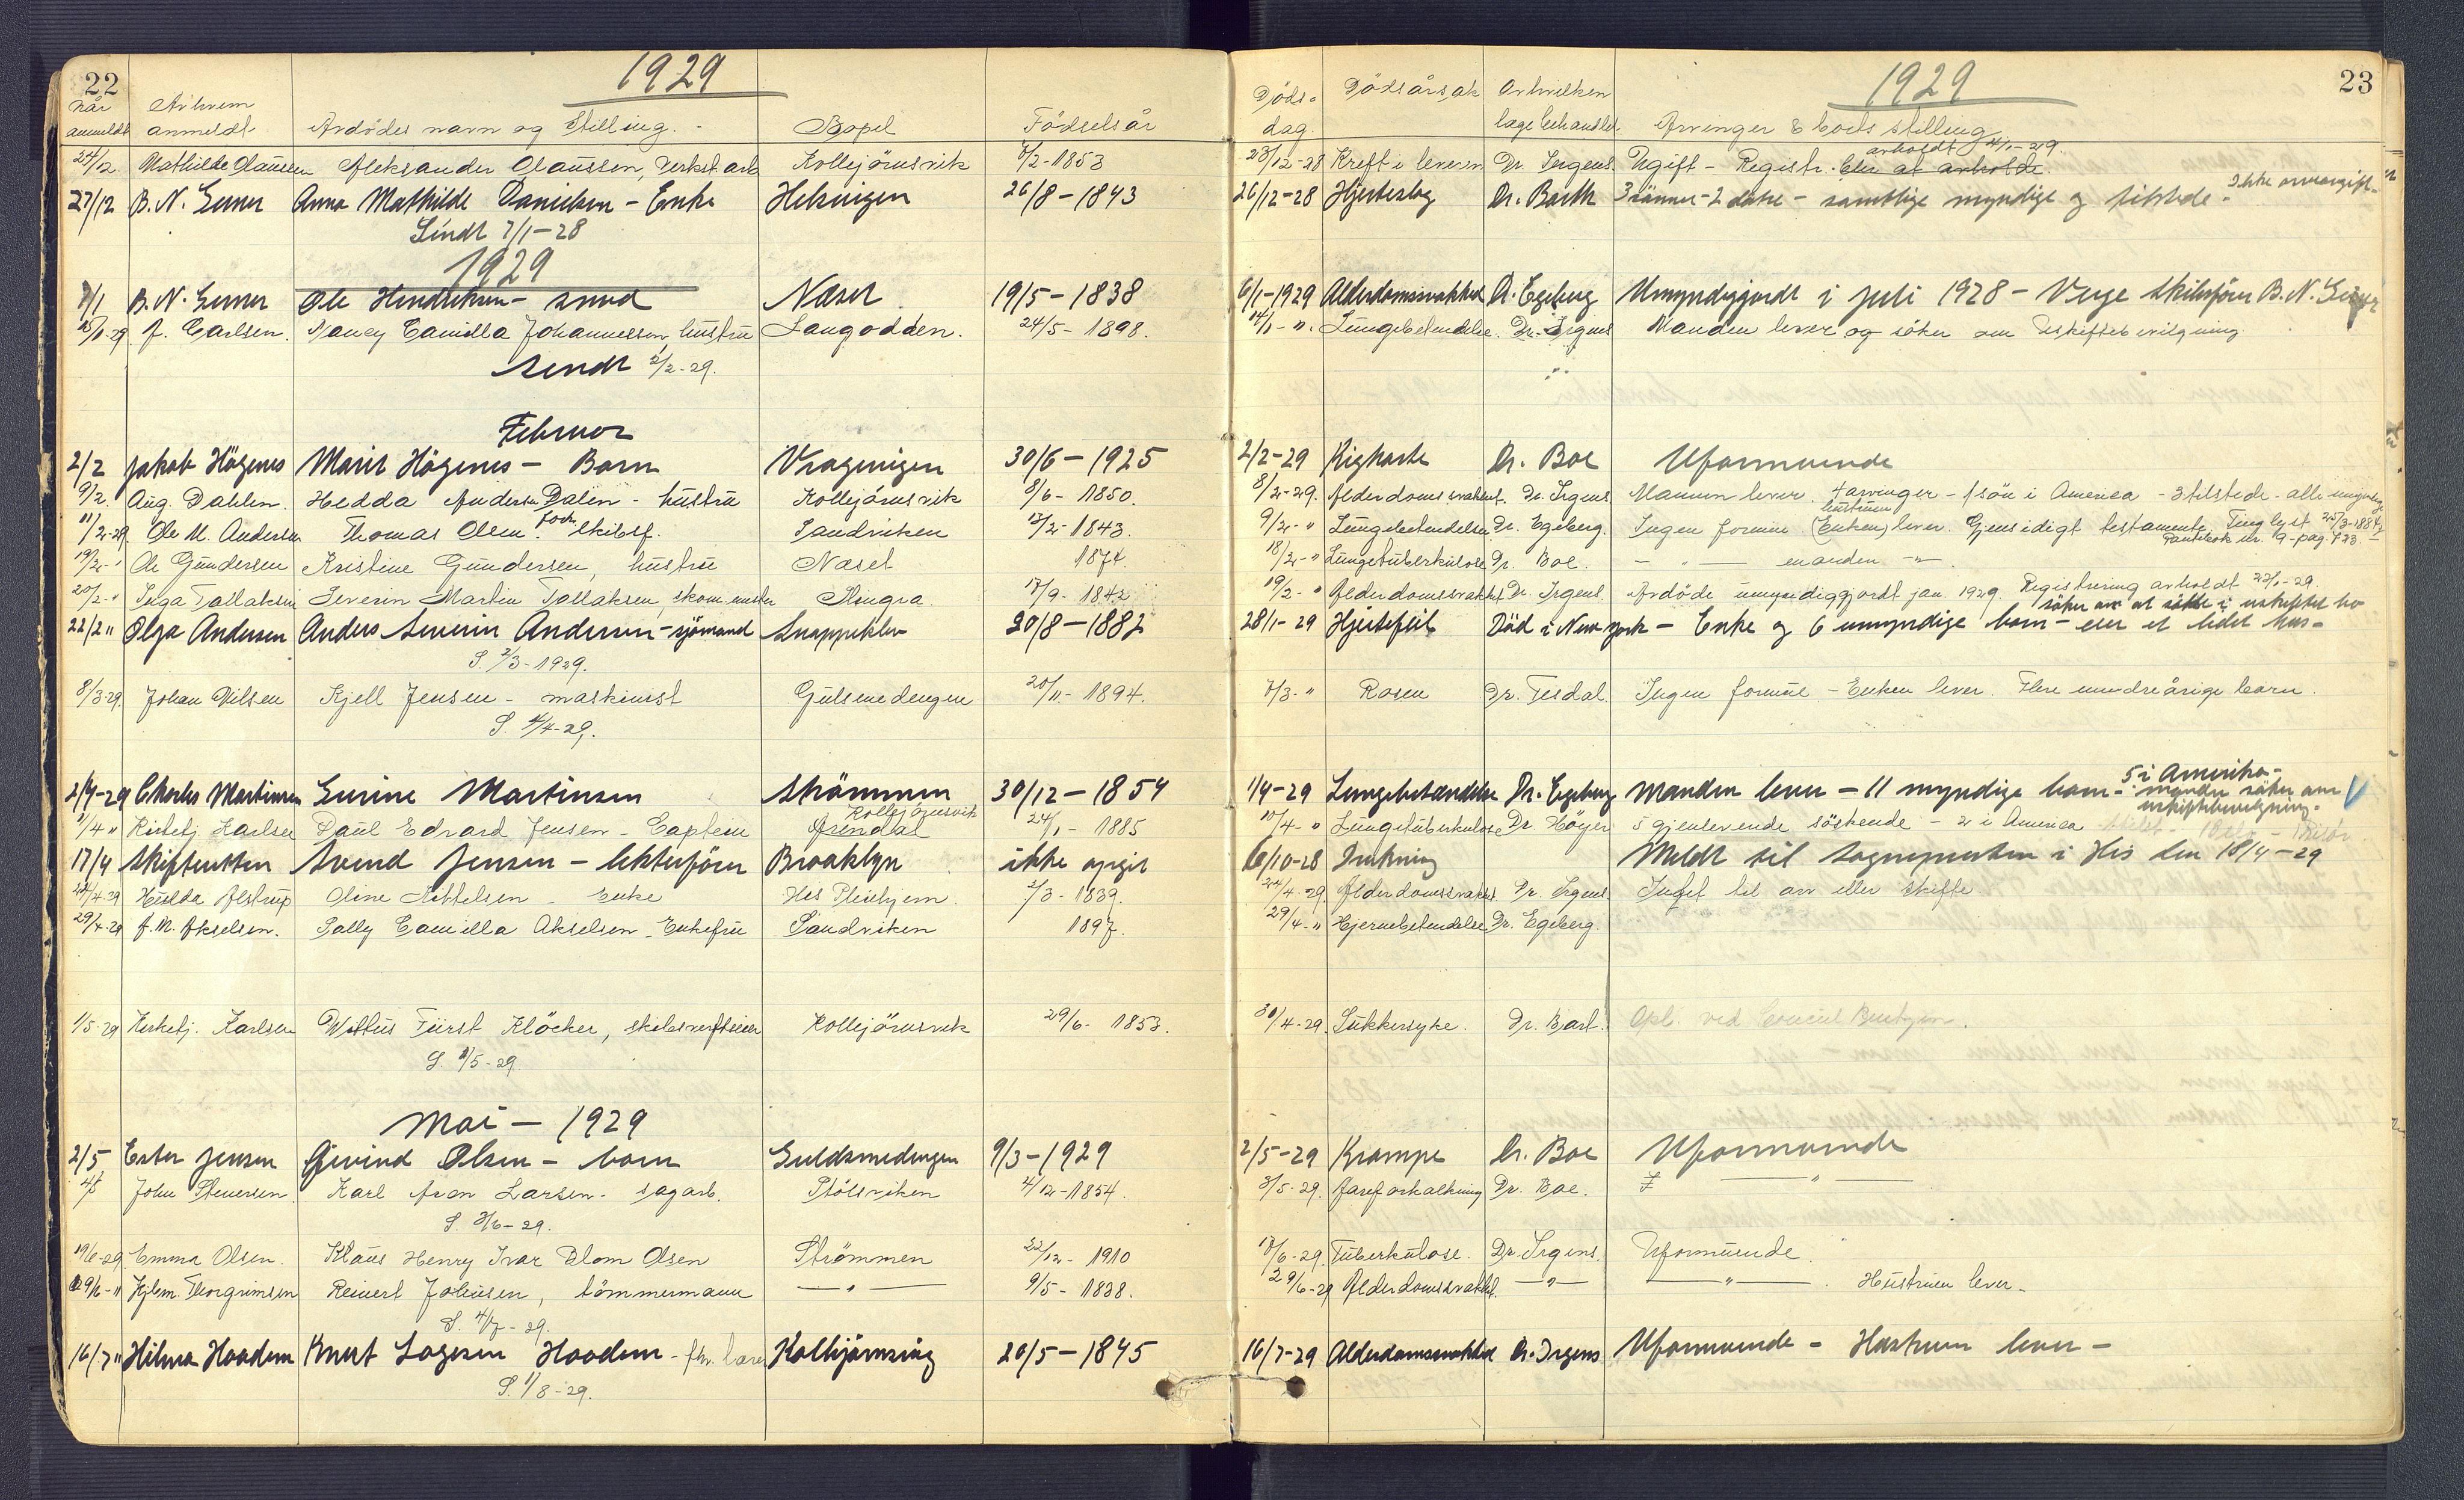 22
1929
Når Av hvem
anmeldt anmeldt Avdödes navn og stilling. - Bopel Födselsår
24/12 Mathilde Olaussen Aleksander Olaussen, Verkst. arb. Kollejörnsvik 7/2-1853
27/12 B. N. Gerner Anna Mathilde Danielsen - Enke Helsingen 26/8-1843
Sendt 7/1-28
1929
7/1 B. N. Gerner Ole Hendriksen - smed Næset 19/5-1838
15/1-29 J. Carlsen. Nancy Camilla Johannessen, hustru Langodden. 24/5-1898.
Sendt 2/2-29.
Februar
2/2 Jakob Högenes Marit Högenes - Barn Vragvigen 30/6-1925
9/2. Aug. Dahlen. Hedda Andersen Dalen - hustru Kollejörnsvik 8/6-1850.
11/2-29 Ole M. Andersen Thomas Olsen. forh. skibsf. Sandviken 13/2-1843.
19/2-" Ole Gundersen Kristine Gundersen, hustru Næset 1874.
20/2-" Inga Tallaksen Severin Martin Tallaksen, skom.mester 17/9-1842
22/2" Olga Andersen Anders Severin Andersen - sjömand Snappeklev 20/8-1882
S. 2/3-1929.
8/3-29. Johan Nilsen Kjell Jensen - maskinist Gulsmedengen 20/11-1894.
S. 4/4-29.
2/4-29 Charles Martinsen Gurine Martinsen Strömmen 30/12-1854
Kollejörnsvik
"/4" Kirketj. Karlsen Paul Edvard Jensen - Captein Arendal 24/1-1885
17/4 Skifteretten Svend Jensen - lekterförer Brooklyn ikke opgit
24/4-29 Hulda Alstrup Oline Kittelsen - Enke His Pleiehjem 2/3-1839.
29/4-29 J. M. Akselsen. Sally Camilla Akselsen - Enkefru Sandviken 1897.
1/5-29 Kirketj. Karlsen Wittus Fürst Klöcker, skibsverftseier Kollejörnsvik 29/6-1853.
S. 1/5-29
Mai - 1929
2/5 Ester Jensen Eivind Olsen - barn Guldsmedengen 9/3-1929
4/5 John Steuersen Karl Aron Larsen - sagarb. Stölsviken 4/12-1854.
S. 3/6-29.
19/6-29 Emma Olsen. Klaus Henry Ivar Blom Olsen Strömmen 22/12-1910
29/6-" Hjlm. Thorgrimsen Reinert Johnsen, tömmermann — " — 9/5-1838.
S. 4/7-29.
16/7" Hilma Haadem Knut Logesen Haadem - fhv. lærer Kolbjörnsvig 20/5-1845
S. 1/8-29.
1929
23
Döds- Dödsårsak Av hvilken
dag. læge behandlet Arvinger & boets stilling
avholdt 4/1-29.
23/12-28 Kreft i leveren Dr. Irgens. Ugift - Registr. blir at avholde.
26/12-28 Hjerteslag Dr. Barth 3 sönner - 2 dötre - samtlige myndige og tilstede - Ikke arveavgift
6/1-1929 Alderdomssvakhed Dr. Egeberg Umyndiggjordt i juli 1928 - Verge skibsförer B. N. Gerner
14/1-". Lungebetendelse. Dr. Irgens Manden lever og söker om uskiftebevilgning
2/2-29 Kighoste Dr. Boe Uformuende
8/2-29. Alderdomssvakhet. Dr. Irgens Mannen lever. 4 arvinger - 1 sön i America - 3 tilstede - alle myndige
hustruen
9/2-" Lungebetendelse Dr. Egeberg. Ingen formue (Enken) lever. Gjensidigt testamente. Tinglyst 25/3-1884
Pantebok nr. 9-pag. 723. -
18/2-" Lungetuberkulose Dr. Boe. - " - manden - " -
19/2-" Alderdomssvakhet Dr. Irgens. Avdöde umyndiggjordt jan. 1929. Registrering avholdt 22/1-29.
söker om at sitte i uskiftet bo
28/1-29 Hjertefeil Död i New York - Enke og 6 umyndige barn - eier et lidet hus -
7/3-" Rosen Dr. Tesdal Ingen formue - Enken lever. Flere mindreårige barn.
5 i Amerika -
1/4-29 Lungebetændelse Dr. Egeberg Manden lever - 11 myndige barn - manden söker om
uskiftebevilgning -
10/4-" Lungetuberkulose Dr. Höyer 5 gjenlevende söskende - 2 i America
6/10-28 Drukning Meldt til sognepresten i His den 18/4-29
24/4-29. Alderdomssvakhet. Dr. Irgens Intet til arv eller skifte
29/4-" Hjernebetendelse Dr. Egeberg.
30/4-29. Sukkersyke. Dr. Bart. Opl. ved
2/5-29 Krampe Dr. Boe Uformuende
3/5-29. Åreforkalkning Dr. Boe. — " —
17/6-29. Tuberkulose. Dr. Irgens. Uformuende.
29/6-29 Alderdomssvakhet. — " — — " — . Hustruen lever.
16/7-29 Alderdomssvakhed Dr. Irgens Uformuende - Hustruen lever -